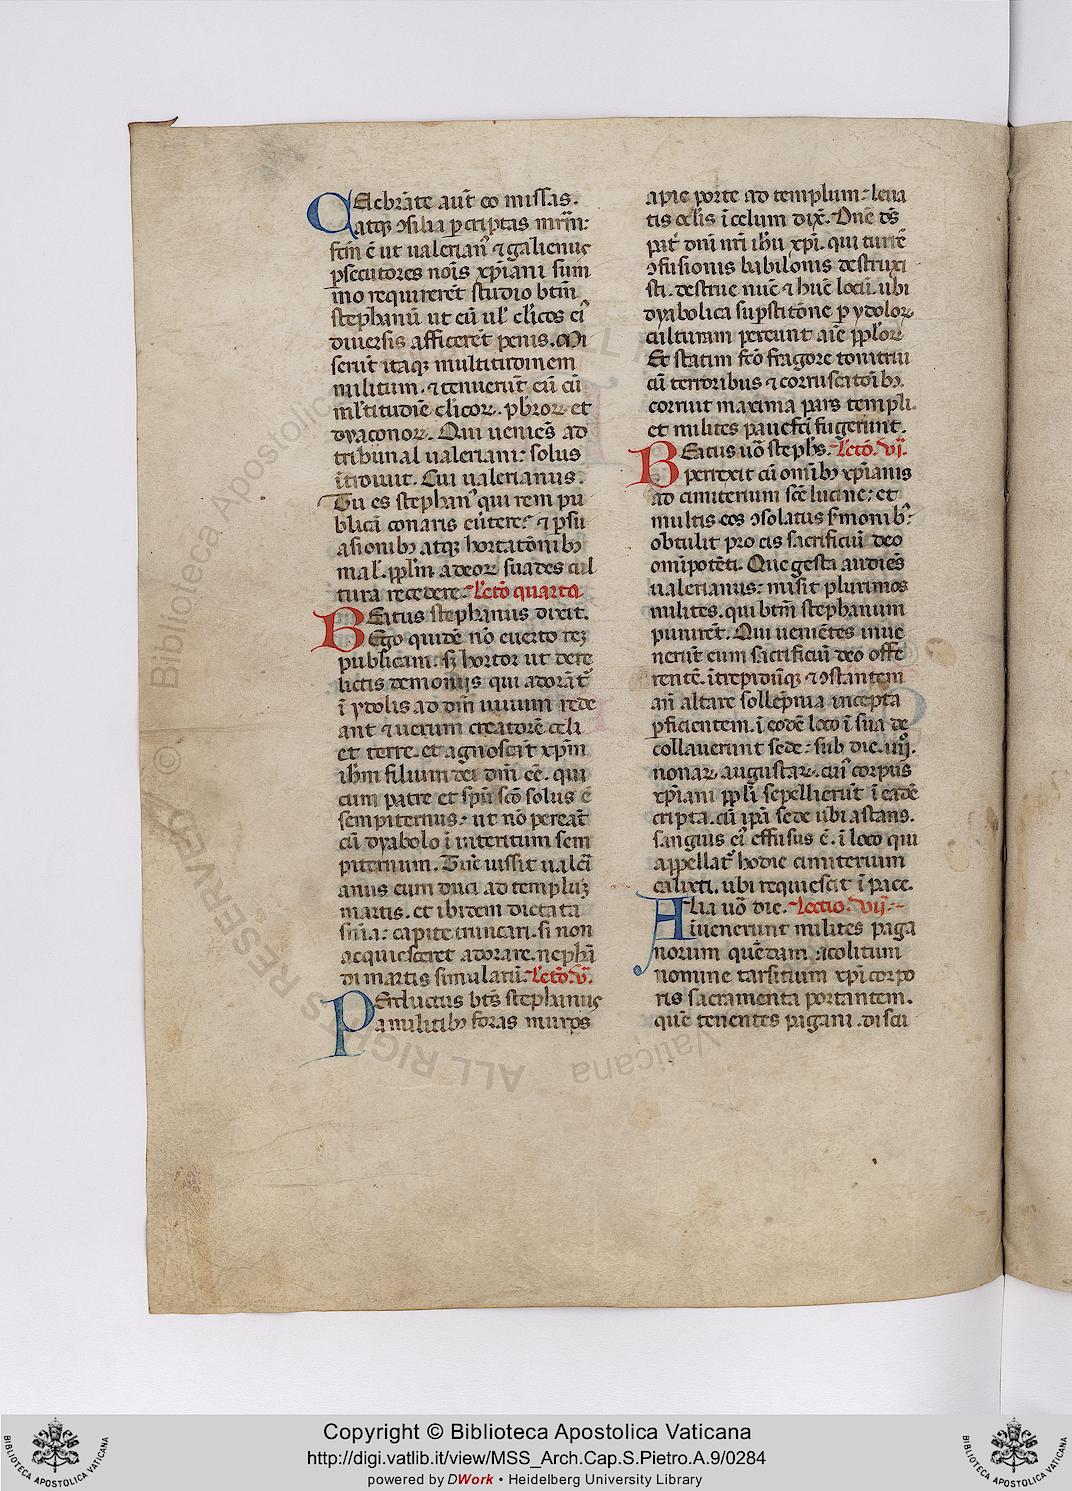 CElebrate aut̄ eo missas.
atqꝫ ↄsilia p criptas mr̄m:
fctm̄ ē ut ualerian᷒ ⁊ galienus
ꝑsecutores noīs xp̄iani sum
mo requirerēt studio btm̄
stephanū ut eū uł clicos ei᷒
diuersis afficerēt penis. Mi
serūt itaqꝫ multitudinem
militum. ⁊ tenuerūt eū cū
mltitudiē clicoꝝ. pb̄roꝝ et
dyaconoꝝ. Qui ueniēs ad
tribunal ualeriani: solus
ītroiuit. Cui ualerianus.
Tu es stephan᷒ qui rem pu
blicā conaris euertere: ⁊ ꝑsu
asionibꝫ atqꝫ hortatōnibꝫ
mal. ppłm a deoꝝ suades cul
tura recedere. Lectō quarta
BEatus stephanus dixit.
Ego quidē nō euerto rez
publicam: sꝫ hortor ut dere
lictis demoniis qui adorāt᷑
ī ydolis ad dm̄ uiuum rede
ant ⁊ uerum creatorē celi
et terre. et agnoscāt xp̄m
ihm̄ filium dei dm̄ eē. qui
cum patre et spū scō solus ē
sempiternus: ut nō pereāt
cū dyabolo ī interitum sem
piternum. Tūc iussit uałi
anus eum duci ad templuꝫ
martis. et ibidem dictata
snīa: capite truncari. si non
acquiesceret adorare. nephā
di martis simulatū. Lectō. v̄.
PErductus bt̄s stephanus
a militibꝫ foras muros
apie porte ad templum: leua
tis oclis ī celum dix̄. Dnē ds̄
pat᷑ dnī nr̄i ihū xp̄i. qui turrē
ↄfusionis babilonis destruxi
sti. destrue nūc ⁊ hūc locū. ubi
dyabolica suꝑstitōne p ydoloꝝ
culturam pereunt aīe pploꝝ
Et statim fctō fragore tonitrui
cū terroribus ⁊ corruscatōibꝫ.
corruit maxima pars templi.
et milites pauefcti fugerunt.
BEatus uō stephs. Lectō. vī.
perrexit cū omībꝫ xp̄ianis
ad cimiterium scē lucine: et
multis eos ↄsolatus smonibꝫ:
obtulit pro eis sacrificiū deo
omīpotēti. Que gesta audiēs
ualerianus: misit plurimos
milites. qui btm̄ stephanum
punirēt. Qui ueniētes inue
nerūt eum sacrificiū deo offe
rentē. ītrepidūqꝫ ⁊ ↄstantem
añ altare sollēpnia incepta
ꝑficientem. ī eodē loco ī sua de
collauerunt sede: sub die. iiij.
nonaꝝ augustaꝝ. cui᷒ corpus
xp̄iani ppłi sepellierūt ī eadē
cripta. cū ip̄a sede ubi astans.
sanguis ei᷒ effusus ē. ī loco qui
appellat᷑ hodie cimiterium
calixti. ubi requiescit ī pace.
ALia uō die. Lectio. vij.
Iuenerunt milites paga
norum quēdam acolitum
nomine tarsitium xp̄i corpo
ris sacramenta portantem.
quē tenentes pagani. disci
© Biblioteca Apostolica Vaticana
ALL RIGHTS RESERVED
Copyright © Biblioteca Apostolica Vaticana
http://digi.vatlib.it/view/MSS_Arch.Cap.S.Pietro.A.9/0284
powered by DWork • Heidelberg University Library
BIBLIOTECA APOSTOLICA VATICANA
BIBLIOTECA APOSTOLICA VATICANA